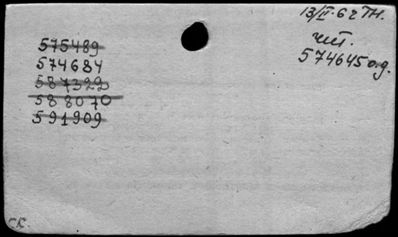 13/II-62 ТН.
чит.
574645 од.
575489
574684
587322
588070
591909
СК.